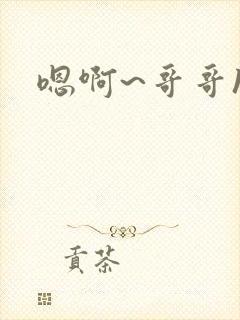 嗯啊~哥哥
贡茶